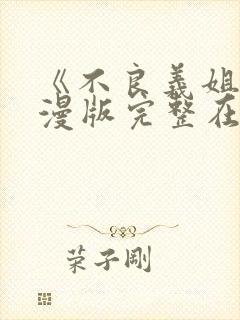 《不良义姐
漫版完整在
荣子刚